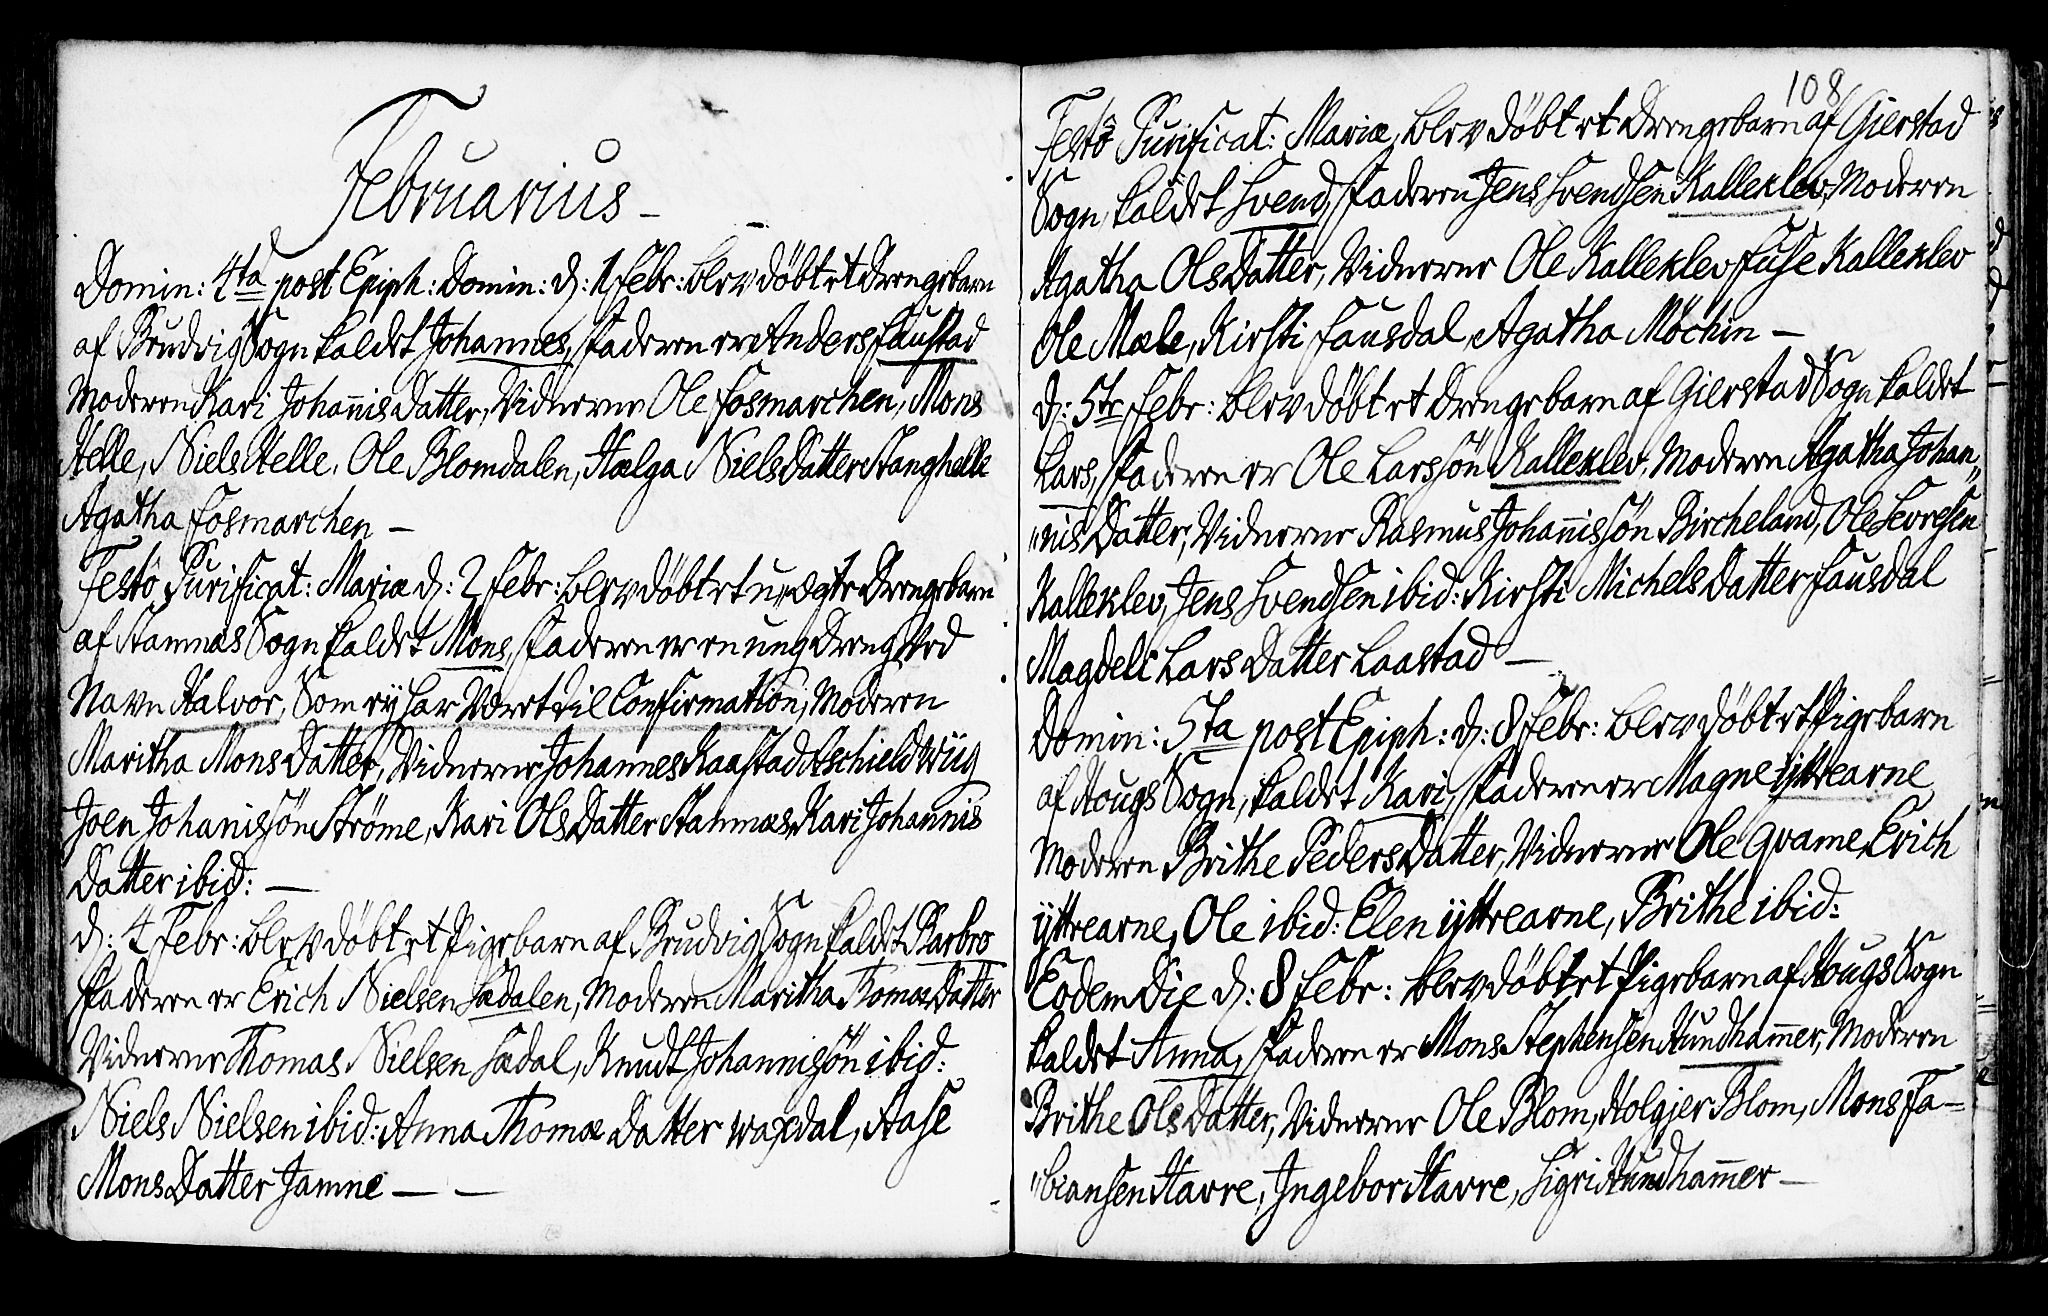 Februarius –
Domin: 4ta post Epiph: Domin: d: 1 Febr: blev döbt et Drengebarn
af Brudvig Sogn kaldet Johannes, Faderen er Anders Faustad
Moderen Kari Johannis Datter, Vidnerne Ole Fosmarchen, Mons
Helle, Niels Helle, Ole Blomdalen, Hælga Niels Datter Stanghelle
Agatha Fosmarchen –
Festô Purificat: Mariæ d: 2 Febr: blev döbt et uægte Drengebarn
af Stamnæs Sogn kaldet Mons, Faderen er en ung Dreng Ved
Navn Halvor, Som ej har Været til Confirmation, Moderen
Maritha Mons Datter, Vidnerne Johannes Kaastad Aschield Wiig
Joen Johanissön Ströme, Kari Ols Datter Stamnæs, Kari Johannis
Datter ibid: –
d: 4 Febr: blev döbt et Pigebarn af Brudvig Sogn kaldet Barbro
Faderen er Erich Nielsen Sædalen, Moderen Maritha Thomæ Datter
Vidnerne Thomas Nielsen Sædal, Knudt Johannissön ibid:
Niels Nielsen ibid: Anna Thomæ Datter Waxdal, Aase
Mons Datter Jamne – –
108
Festô Purificat: Mariæ, blev döbt et Drengebarn af Gierstad
Sogn, kaldet Svend, Faderen Jens Svendsen Kalleklev, Moderen
Agatha Ols Datter, Vidnerne Ole Kalleklev Fuse Kalleklev
Ole Mæle, Kirsti Fausdal, Agatha Möchin –
d: 5te Febr: blev döbt et Drengebarn af Gierstad Sogn kaldet
Lars, Faderen er Ole Larssön Kalleklev, Moderen Agatha Johan„
„nis Datter, Vidnerne Rasmus Johannissön Bircheland, Ole Sevresen
Kalleklev, Jens Svendsen ibid: Kirsti Michels Datter Fausdal
Magdeli Lars Datter Laastad –
Domin: 5ta post Epiph: d: 8 Febr: blev döbt et Pigebarn
af Hougs Sogn, kaldet Kari, Faderen er Magne ÿttrearne
Moderen Brithe Peders Datter, Vidnerne Ole Qvame, Erich
ÿttrearne, Ole ibid: Elen ÿttrearne, Brithe ibid:
Eodem Die d: 8 Febr: blev döbt et Pigebarn af Hougs Sogn
kaldet Anna, Faderen er Mons Stephensen Hundham̄er, Moderen
Brithe Ols Datter, Vidnerne Ole Blom, Holgjer Blom, Mons Fa–
„biansen Havre, Ingebor Havre, Sigri Hundham̄er –